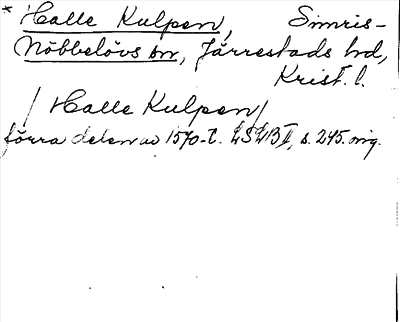 * Halle Kulpen, Simris-
Nöbbelövs sn, Järrestads hd,
Krist. l.
/ Halle Kulpen /
förra delen av 1570-t. LSLB II, s. 245. orig.